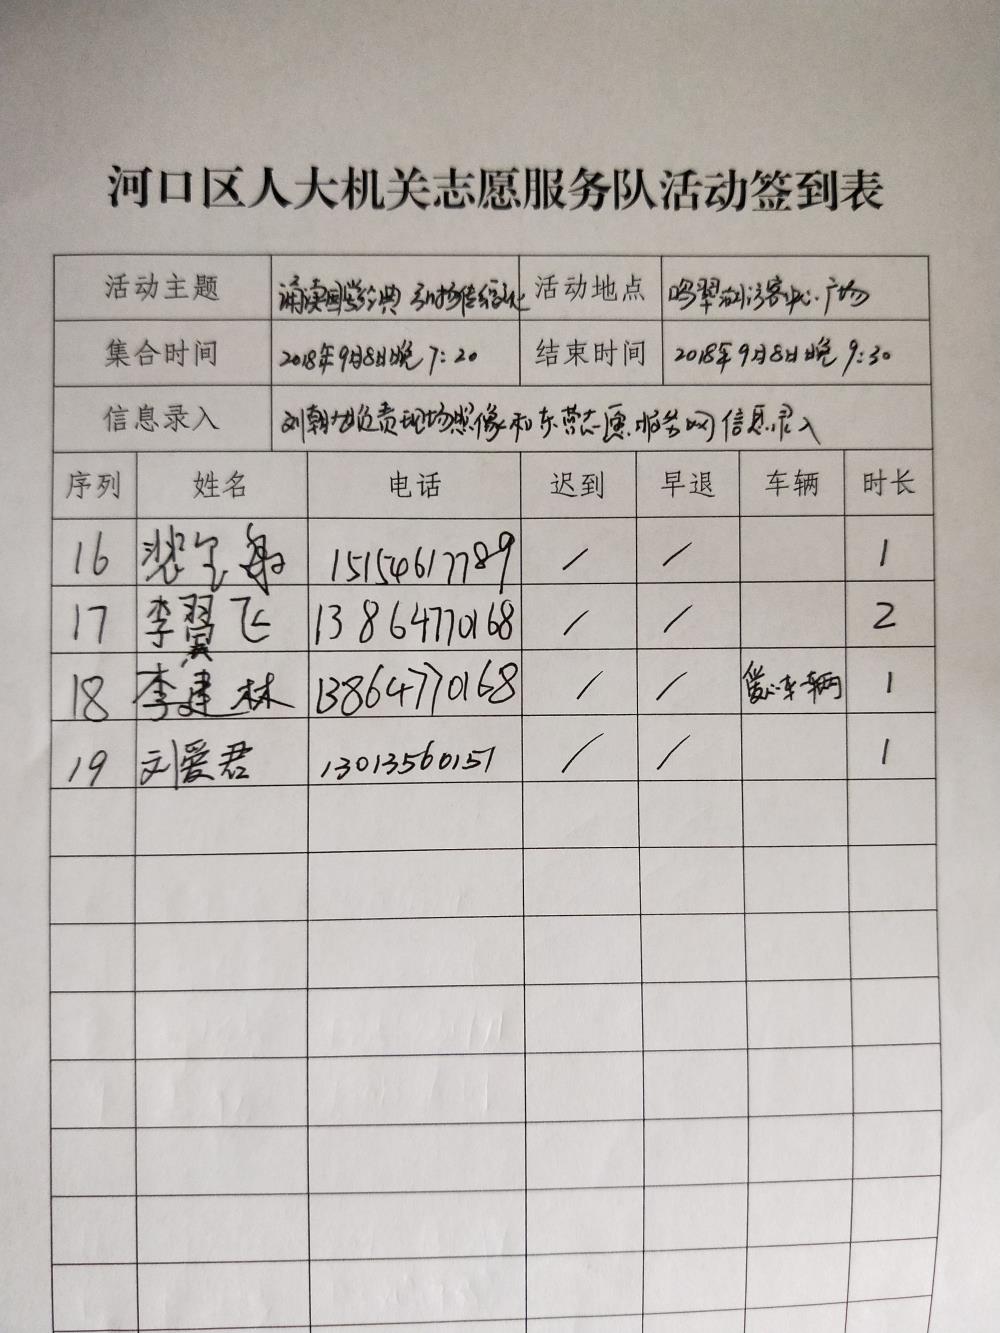 河口区人大机关志愿服务队活动签到表
活动主题 诵读国学经典 弘扬传统文化 活动地点 鸣翠湖访客中心广场
集合时间 2018年9月8日晚7:20 结束时间 2018年9月8日晚9:30
信息录入 刘朝 负责现场照像和东营志愿服务网信息录入
序列 姓名 电话 迟到 早退 车辆 时长
16 裴 15154617789 / / 1
17 李翼飞 13864770168 / / 2
18 李建林 13864770168 / / 爱心车辆 1
19 刘爱君 13013560151 / / 1